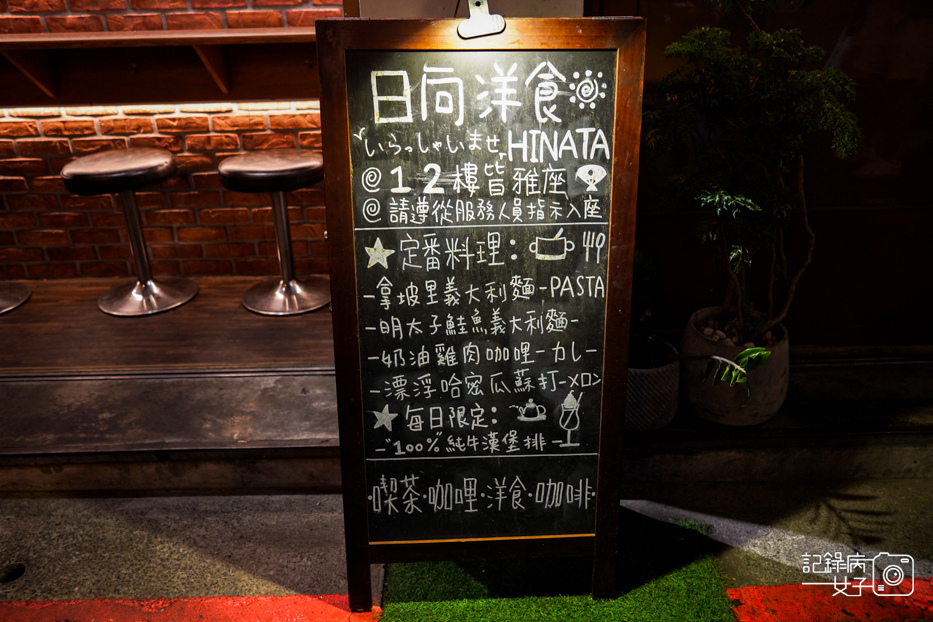 日向洋食
いらっしゃいませ HINATA
@12樓皆雅座
@請遵從服務人員指示入座
定番料理：
-拿坡里義大利麵-PASTA
-明太子鮭魚義大利麵-
-奶油雞肉咖哩-カレ-
-漂浮哈密瓜蘇打-メロン
每日限定：
-100%純牛漢堡排-
·喫茶·咖哩·洋食·咖啡·
記錄病女子